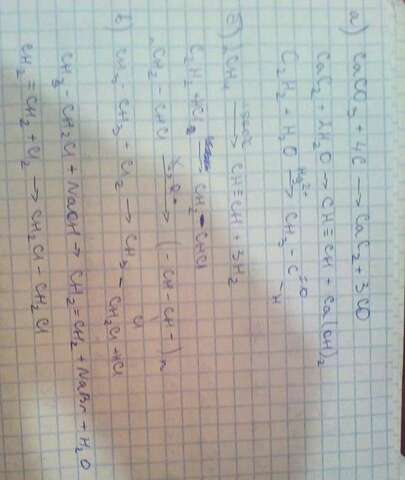 а) CaCO3 + 4C → CaC2 + 3CO
CaC2 + 2H2O → CH ≡ CH + Ca(OH)2
C2H2 + H2O →Hg2+ CH3 - C =O
H
б) 2CH4 → CH≡CH + 3H2
C2H2 + HCl → CH2 = CHCl
CH2 - CHCl → (-CH-CH-)n
Cl
в) CH3 - CH3 + Cl2 → CH3 - CH2Cl + HCl
CH3 - CH2Cl + NaOH → CH2=CH2 + NaBr + H2O
CH2=CH2 + Cl2 → CH2Cl - CH2Cl